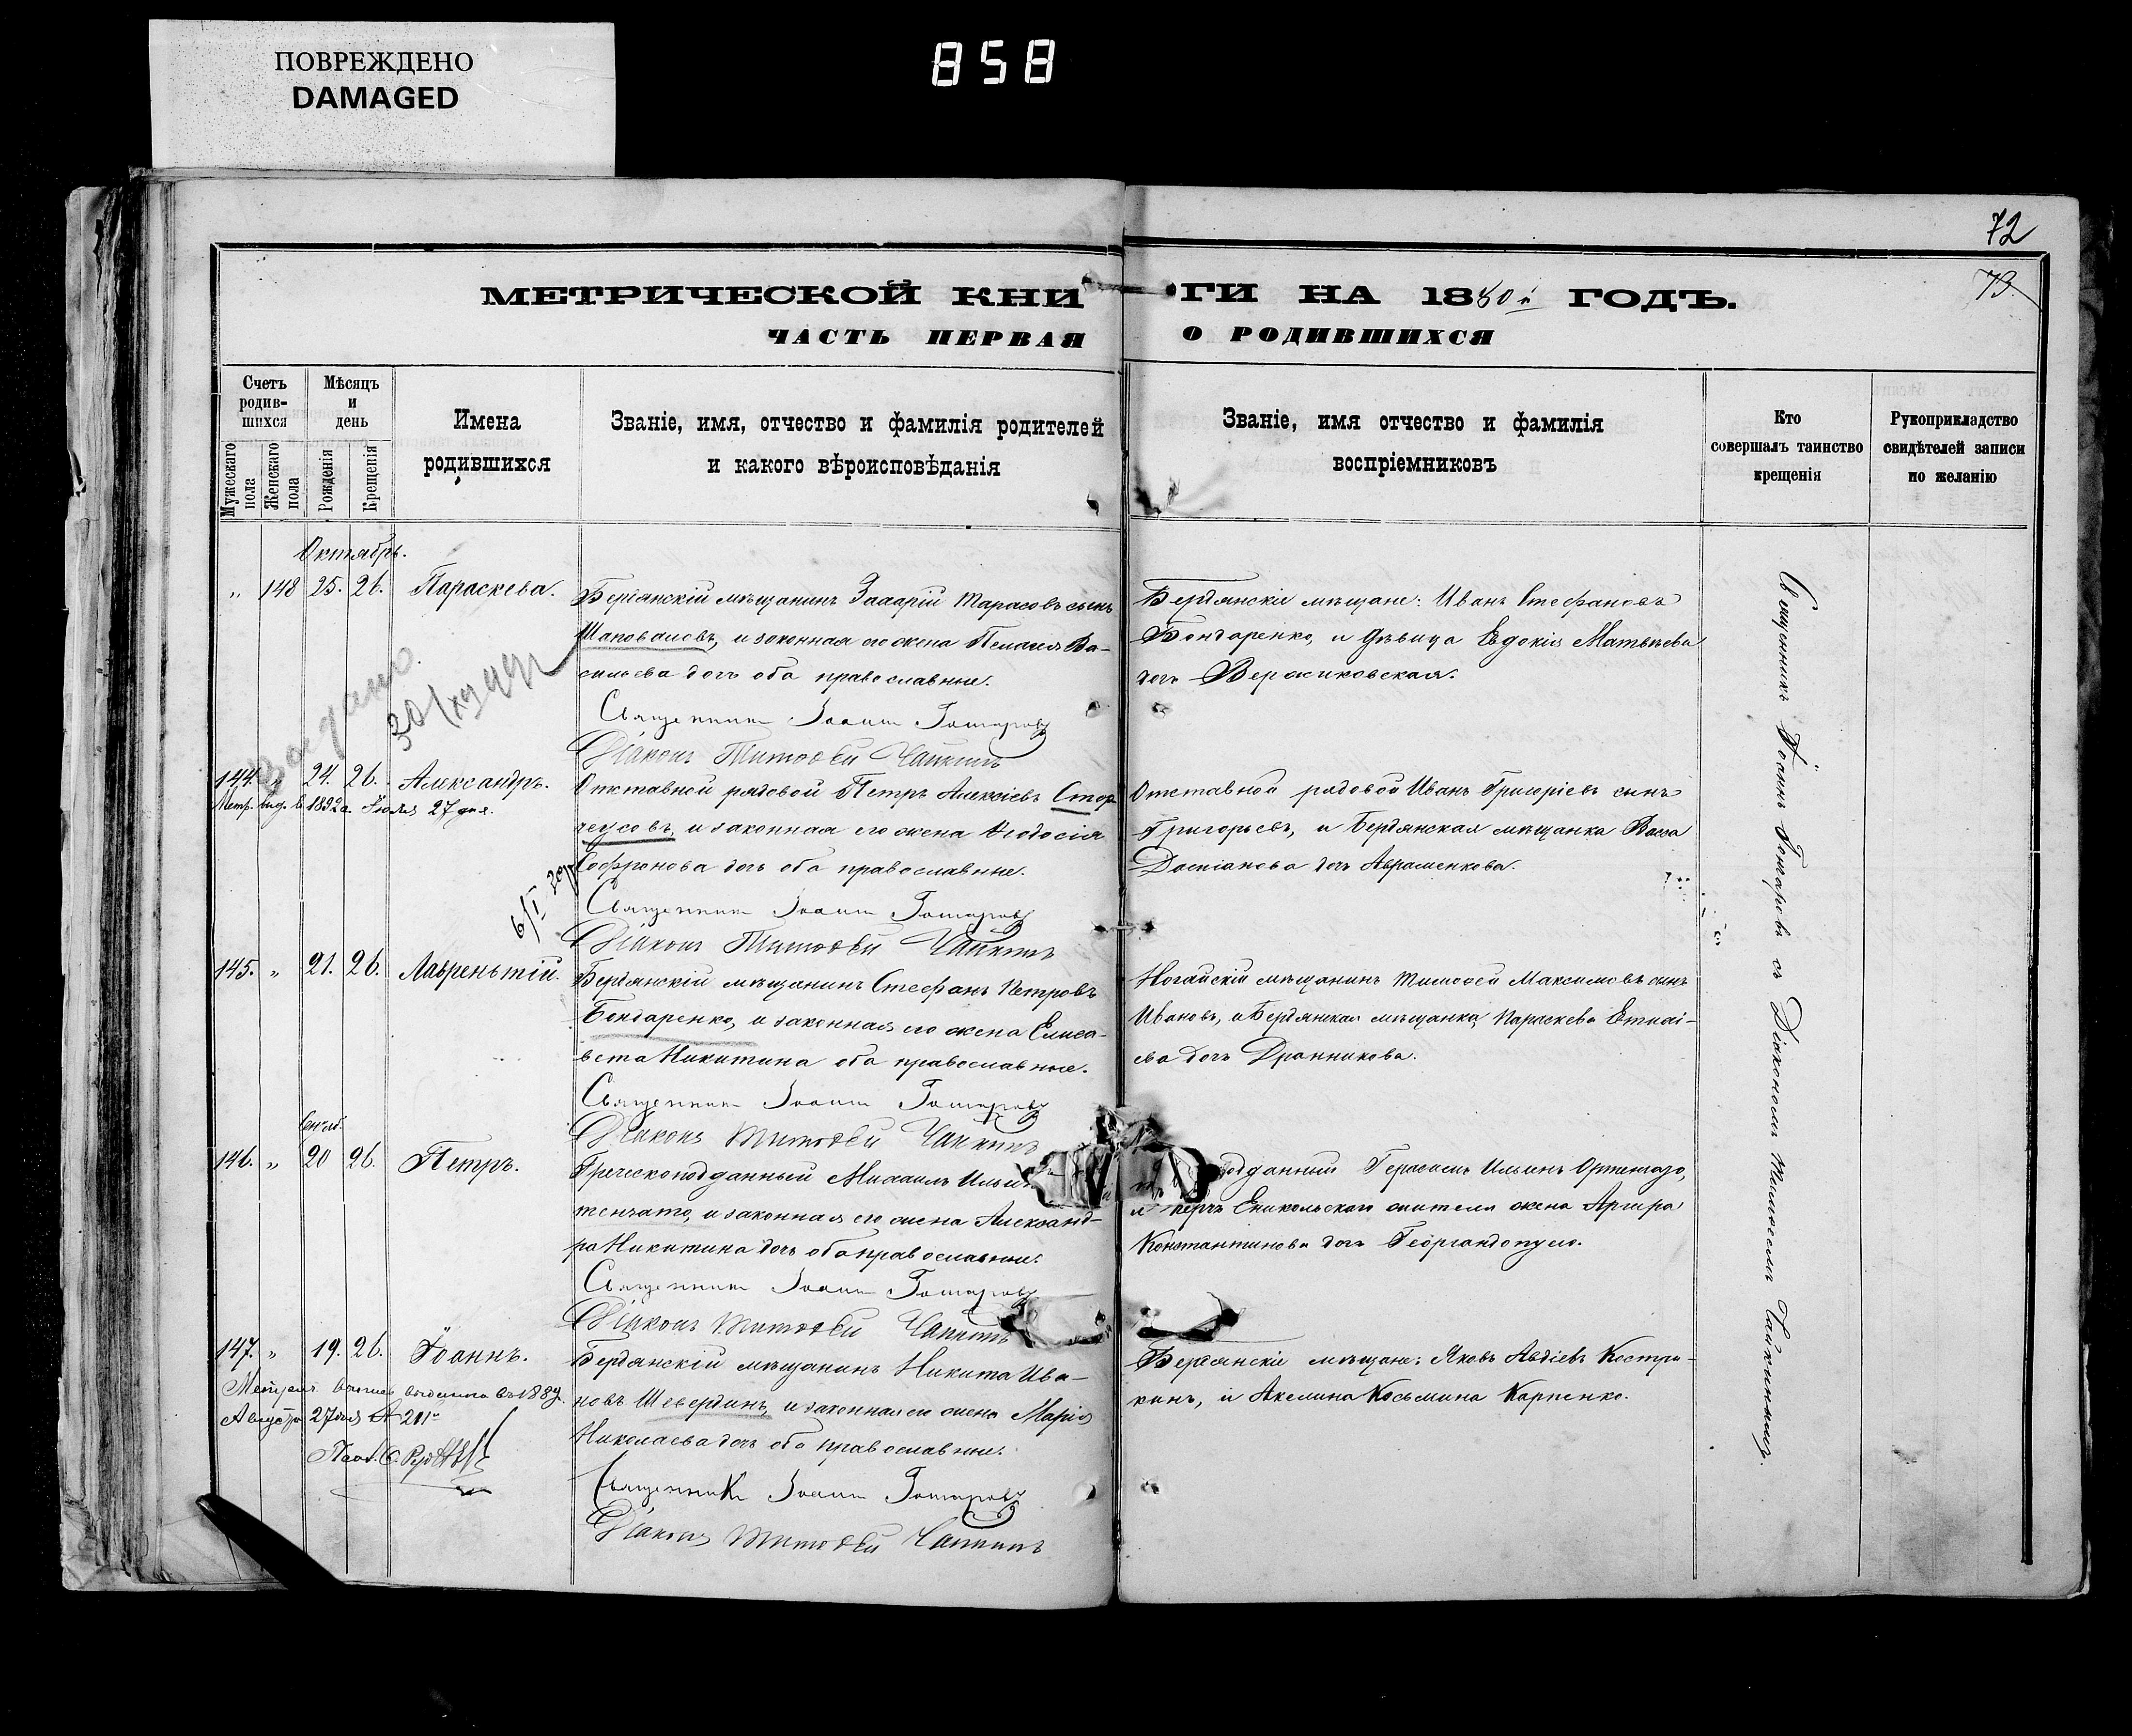 ПОВРЕЖДЕНО
DAMAGED
858
72
73.
МЕТРИЧЕСКОЙ КНИ
ГИ НА 1880й ГОДЪ.
ЧАСТЬ ПЕРВАЯ
О РОДИВШИХСЯ
Счетъ
родив-
шихся
Мужескаго
пола
Женскаго
пола
Мѣсяцъ
и
день
Рожденія
Крещенія
Имена
родившихся
Званіе, имя, отчество и фамилія родителей
и какого вѣроисповѣданія
Званіе, имя отчество и фамилія
воспріемниковъ
Кто
совершалъ таинство
крещенія
Рукоприкладство
свидѣтелей записи
по желанію
Октябрь.
" 148 25. 26. Параскева.
Бердянскій мѣщанинъ Захарій Тарасовъ сынъ
Шаповаловъ, и законная его жена Пелагія Ва-
сильева дочь оба православные.
Священникъ Іоаннъ Гончаровъ
Діаконъ Тимоѳей Чайкинъ
Бердянскіе мѣщане: Иванъ Стефановъ
Бондаренко, и дѣвица Евдокія Матвѣева
дочь
Выдано
144. " 24. 26. Александръ.
Метр. выд. въ 1892 г. Іюля 27 дня.
Отставной рядовой Петръ Алексіевъ Стор
чеусовъ, и законная его жена Ѳеодосія
Софронова дочь оба православные.
Священникъ Іоаннъ Гончаровъ
Діаконъ Тимоѳей Чайкинъ
Отставной рядовой Иванъ Григоріевъ сынъ
Григорьевъ, и Бердянская мѣщанка Васса
дочь Авраменкова.
145. " 21. 26. Лаврентій.
Бердянскій мѣщанинъ Стефанъ Петровъ
Бондаренко, и законная его жена Елиса-
вета Никитина оба православные.
Священникъ Іоаннъ Гончаровъ
Діаконъ Тимоѳей Чайкинъ
Ногайскій мѣщанинъ Тимоѳей Максимовъ сынъ
Ивановъ, и Бердянская мѣщанка Параскева
ева дочь Дранникова.
146. " 20 26. Петръ.
Греческоподданный Михаилъ
и законная его жена Александ-
ра Никитина дочь оба православные.
Священникъ Іоаннъ Гончаровъ
Діаконъ Тимоѳей Чайкинъ
подданный Герасимъ Ильинъ
и Керчь Еникольскаго жителя жена Аргира
Константинова дочь Георгандопуло.
147. " 19. 26. Іоаннъ.
выдана въ 1889
Августа 27 дня № 211
Бердянскій мѣщанинъ Никита Ива-
новъ Шевердинъ, и законная его жена Марія
Николаева дочь оба православные.
Священникъ Іоаннъ Гончаровъ
Діаконъ Тимоѳей Чайкинъ
Бердянскіе мѣщане: Яковъ Авдіевъ Костри-
кинъ, и Акелина Косьмина Карпенко.
Священникъ Іоаннъ Гончаровъ съ Діакономъ Тимоѳеемъ Чайкинымъ.